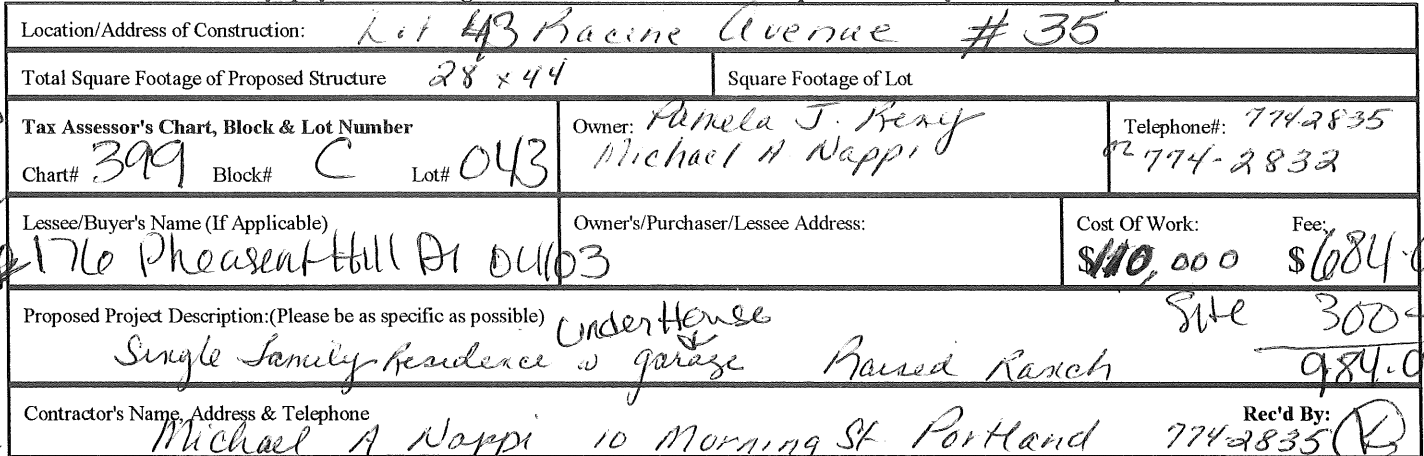 Location/Address of Construction: Lot 43 Racine Avenue # 35
Total Square Footage of Proposed Structure 28 x 44
Square Footage of Lot
Tax Assessor's Chart, Block & Lot Number
Chart# 399 Block# C Lot# 043
Owner: Pamela J.
Michael A Nappi
Telephone#: 774-2835
774-2832
Lessee/Buyer's Name (If Applicable)
176 Pheasent Hill Dr 04103
Owner's/Purchaser/Lessee Address:
Cost Of Work: Fee:
$110,000 $684.0
Proposed Project Description:(Please be as specific as possible) Under House Site 300
Single Family Residence garage Raised Ranch 984.0
Contractor's Name, Address & Telephone Rec'd By:
Michael A Nappi 10 Morning St. Portland 774-2835